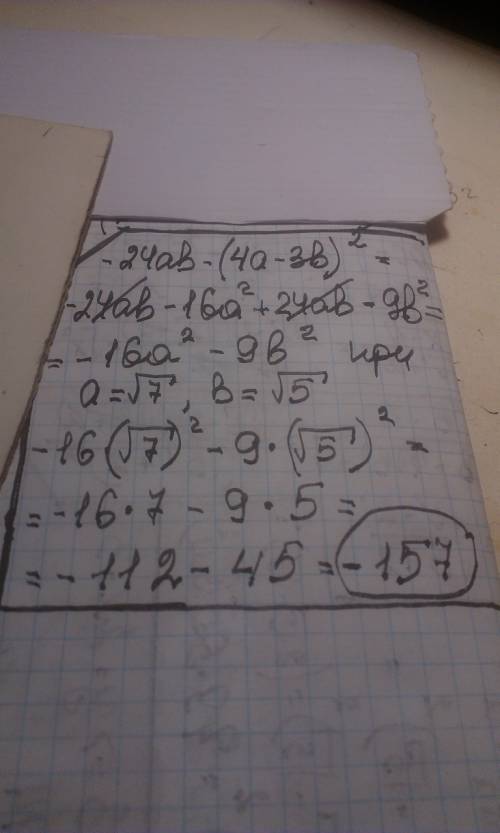 -24ab-(4a-3b)² =
-24ab-16a²+24ab-9b²=
= -16a² - 9b² при
a=√7, b=√5
-16(√7)²-9·(√5)² =
=-16·7 - 9·5 =
= -112-45 = -157